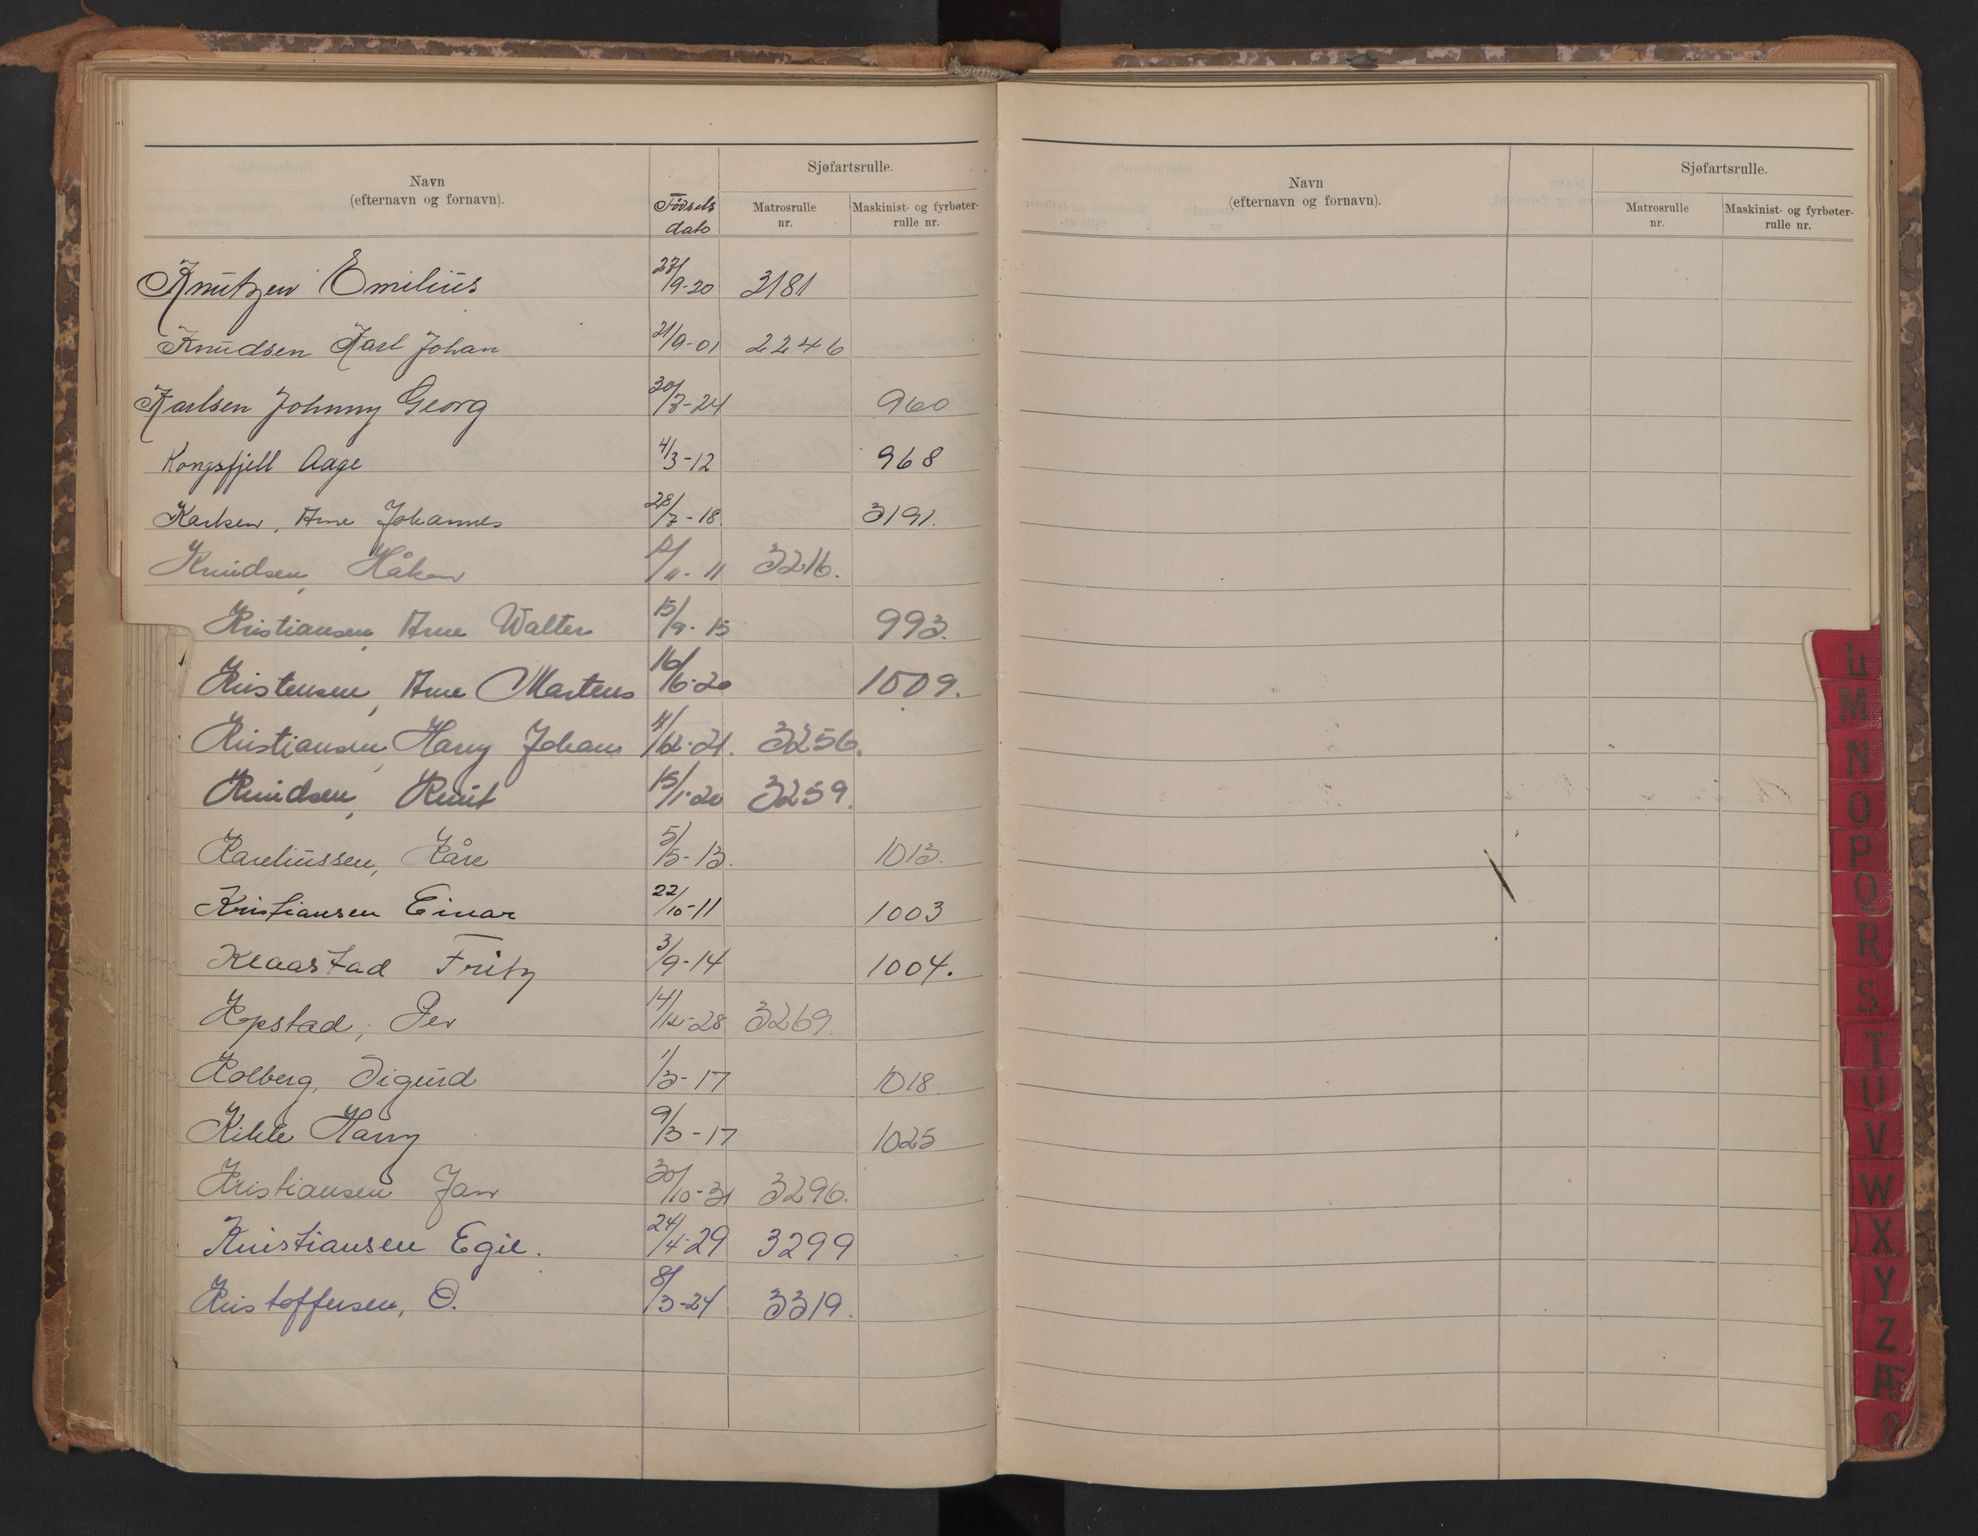 Navn
(efternavn og fornavn).
Födsels
dato
Sjøfartsrulle.
Matrosrulle
nr.
Maskinist- og fyrbøter-
rulle nr.
Knutzen Emilius 27/9-20 3181
Knudsen Karl Johan 21/9-01 2246
Karlsen Johnny Georg 30/3-24 960
Kongsfjell Aage 4/3-12 968
Karlsen, Arne Johannes 28/7-18 3191.
Knudsen, Håkon /11-11 3216.
Kristiansen, Arne Walter 15/9-15 993.
Kristensen, Arne Martens 16/6-20 1009.
Kristiansen, Harry Johans 4/12-21. 3256.
Knudsen, Knut 15/1-20 3259.
Kareliussen, Kåre 5/5-13. 1013.
Kristiansen Einar 22/10-11 1003
Klaastad Fritz 3/9-14 1004.
Kopstad, Per 14/12-28 3269.
Kolberg, Sigurd 1/3-17 1018.
Kihle Harry 9/3-17 1025
Kristiansen Jan 30/10-31 3296.
Kristiansen Egil. 24/4-29 3299
Kristoffersen, O. 8/3-24 3319.
Navn
(efternavn og fornavn).
Sjøfartsrulle.
Matrosrulle
nr.
Maskinist- og fyrbøter-
rulle nr.
L
M
N
O
P
Q
R
S
T
U
V
W
X
Y
Z
Æ